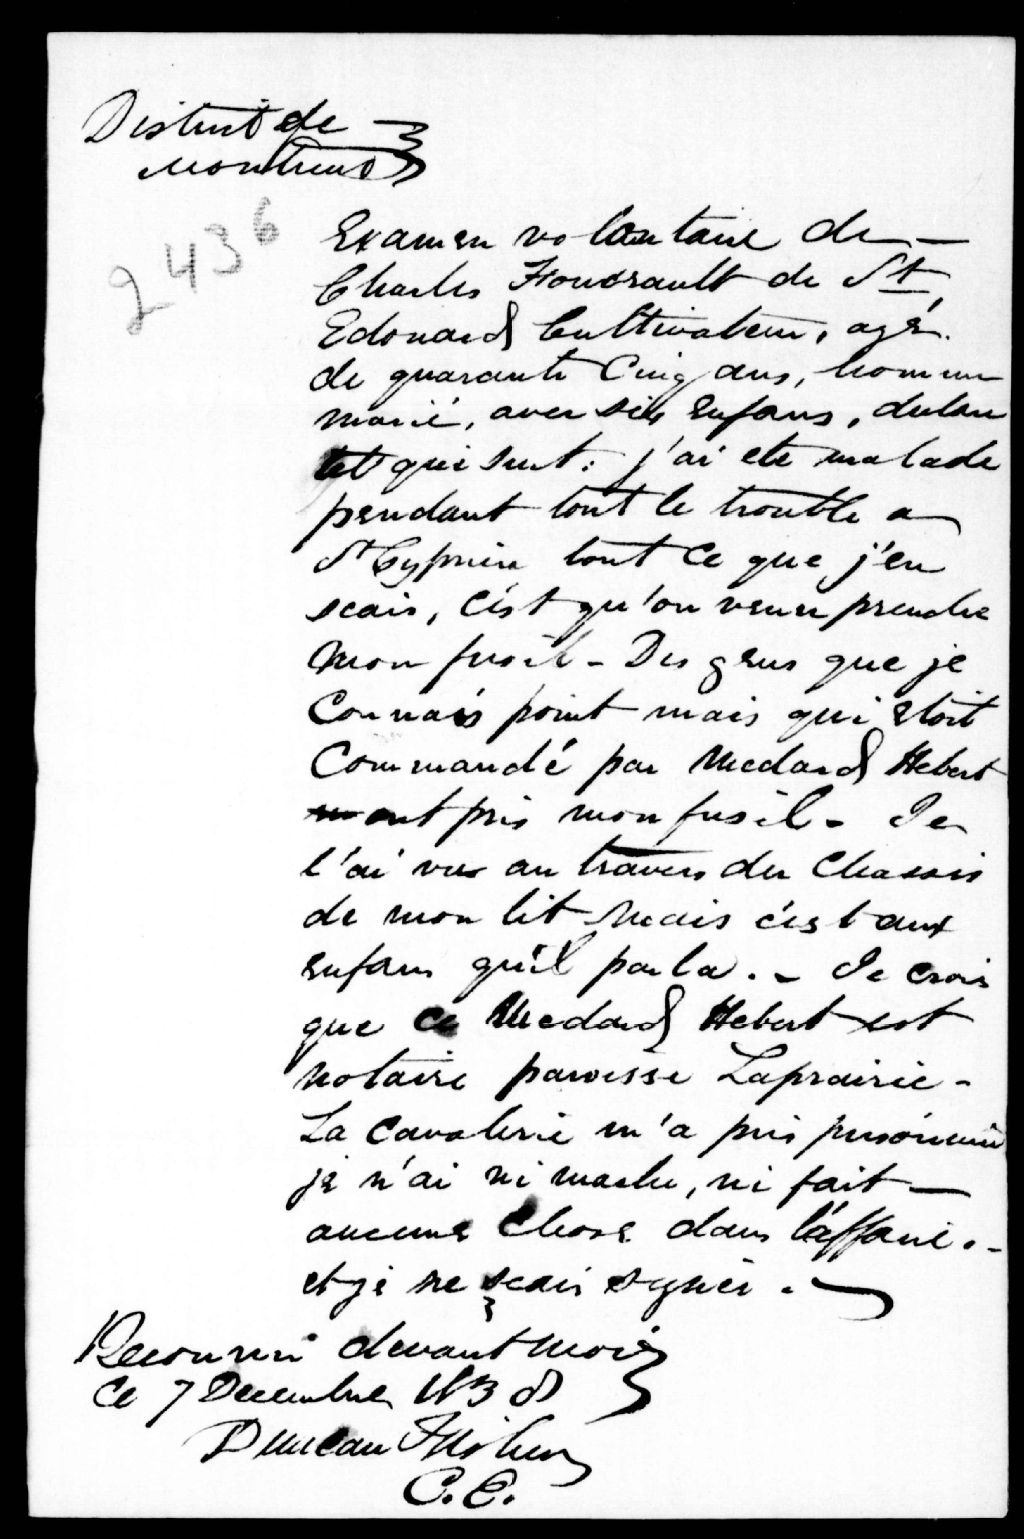 District de
Montreal
2436
Examen volontaire de —
Charles Foucrault de St
Edouard Cultivateur, agé
de quarante Cinq ans, homme
marié, avec six enfans,
et qui suit: j'ai ete malade
pendant tout le trouble a
St Cyprien tout ce que j'en
scais, c'ést qu'on venu prendre
mon fusil - Des gens que je
Connais point mais qui etoit
Commandé par Medard Hebert
ont pris mon fusil - Je
l'ai vu au travers du Chassis
de mon lit Mais c'est aux
enfans qu'il parla. - Je crois
que ce Medard Hebert est
notaire paroisse Laprairie -
La Cavalerie m'a pris prisonnier
je n'ai ni marche, ni fait —
aucune Chose dans l'affaire. -
et je ne scais signer. —
Reconnu devant moi
Ce 7 Decembre 1838
Duncan Fisher
C.E.